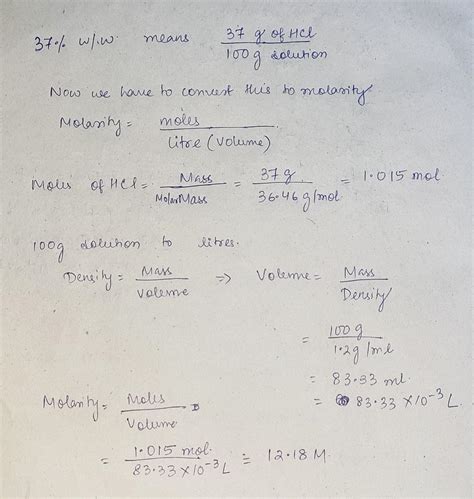 37% w/w. means 37 g of HCl / 100 g solution
Now we have to convert this to molarity
Molarity = moles / litre (volume)
Moles of HCl = Mass / Molar Mass = 37 g / 36.46 g/mol = 1.015 mol
100g solution to litres.
Density = Mass / Voleme => Voleme = Mass / Density
= 100 g / 1.2 g/ml
= 83.33 ml
= 83.33 x10-3 L
Molarity = Moles / Volume
= 1.015 mol / 83.33 x10-3 L = 12.18 M